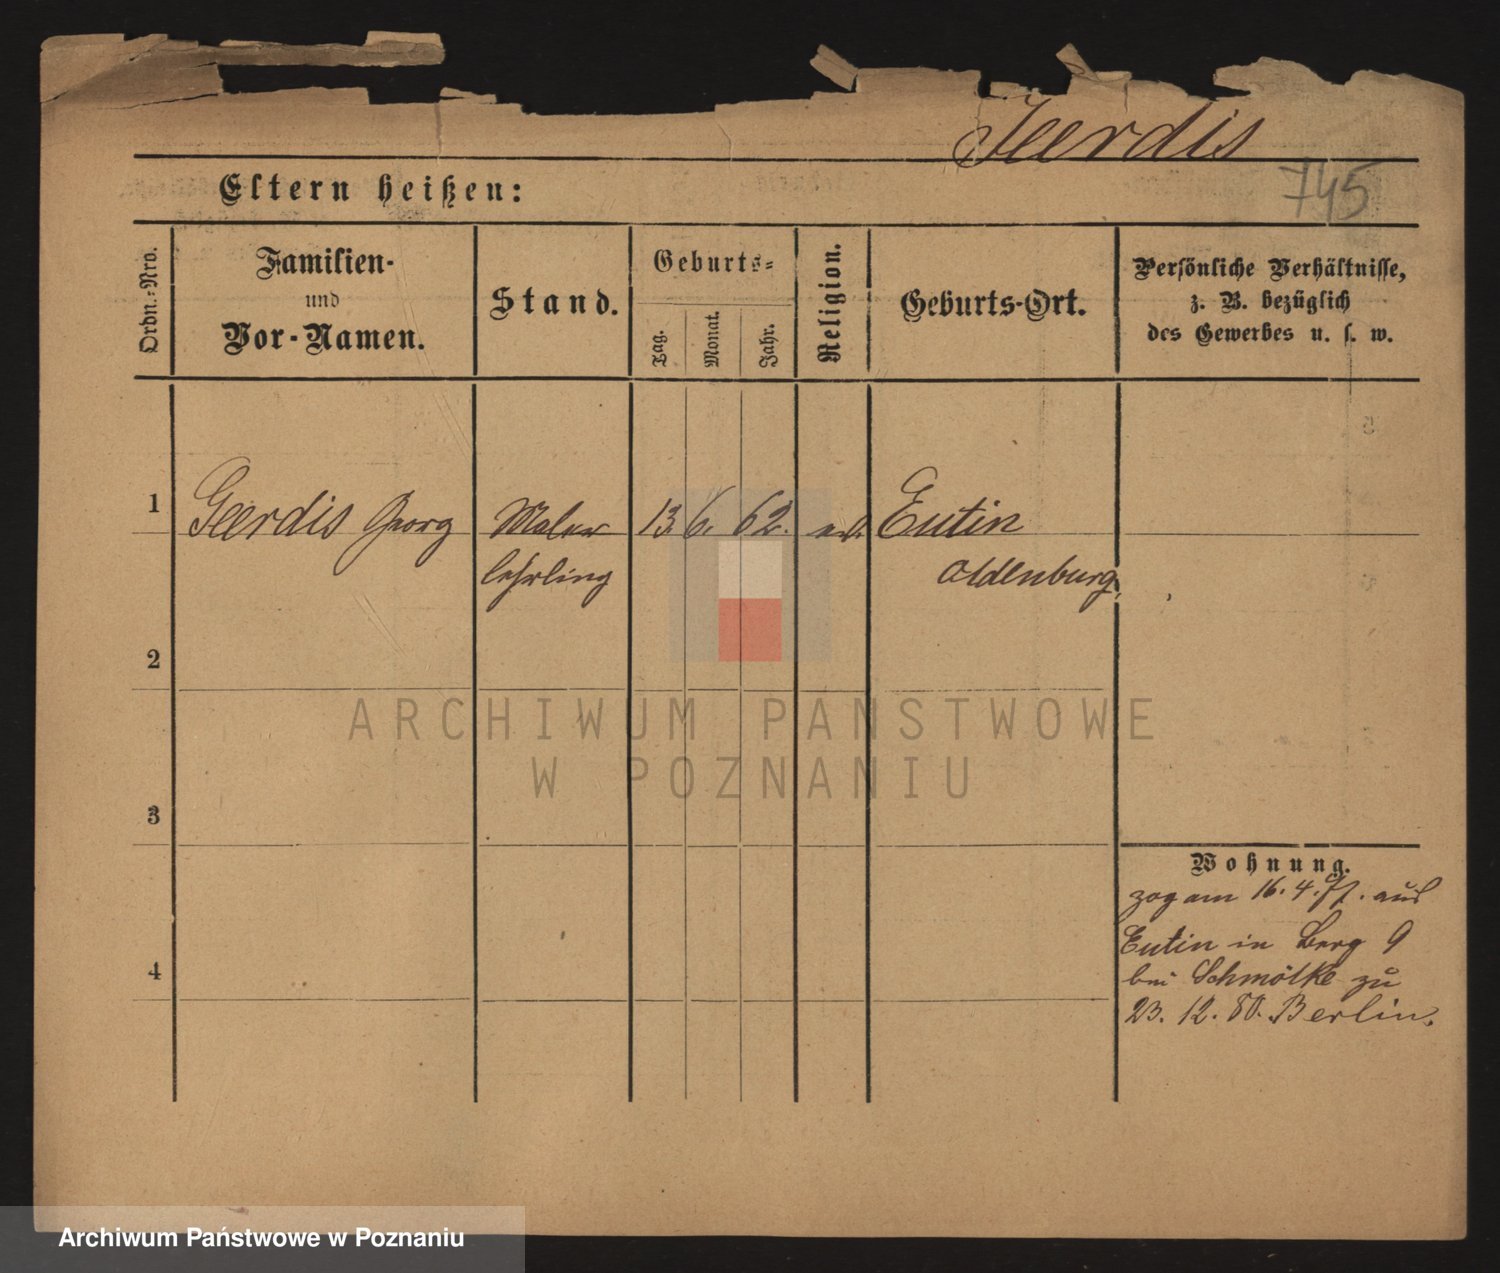 Geerdis
745
Eltern heißen:
Ordn.-Nro.
Familien-
und
Vor-Namen.
Stand.
Geburts-
Tag.
Monat.
Jahr.
Religion.
Geburts-Ort.
Persönliche Verhältnisse,
z. B. bezüglich
des Gewerbes u. s. w.
1 Geerdis Georg Maler 13. 6. 62. Eutin
lehrling Oldenburg,
2
ARCHIWUM PAŃSTWOWE
W POZNANIU
3
Wohnung.
zog am 16. 4. aus
Eutin in Berg 9
4
bei Schmölke zu
23. 12. 80. Berlin.
Archiwum Państwowe w Poznaniu